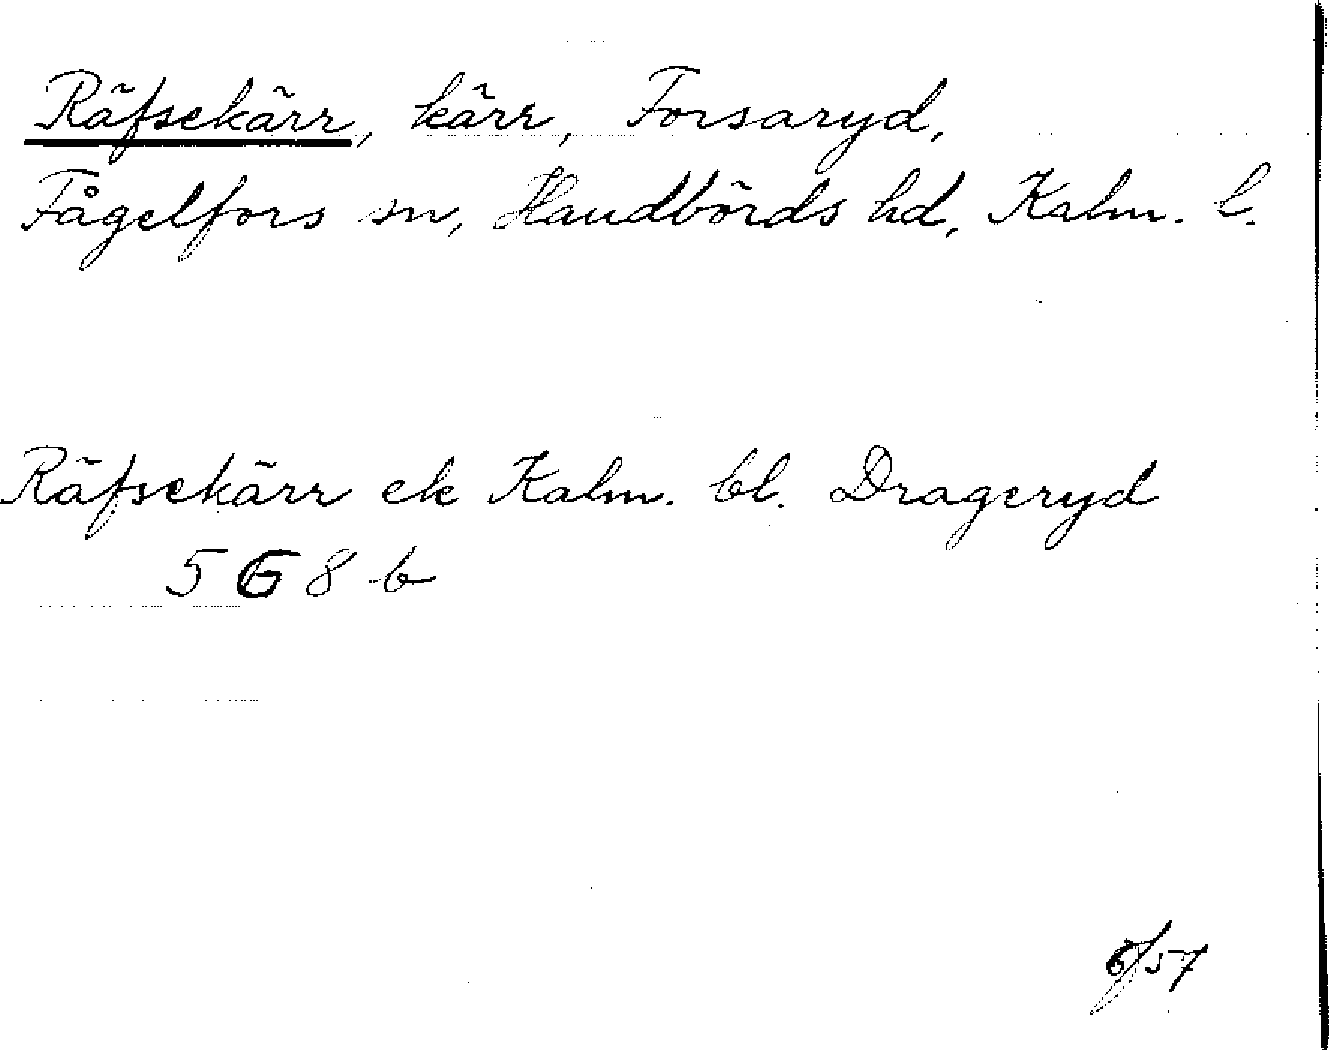 Räfsekärr, kärr, Forsaryd,
Fågelfors sn, Handbörds hd, Kalm. l.
Räfsekärr ek Kalm. bl. Drageryd
5 G 8 b
/57